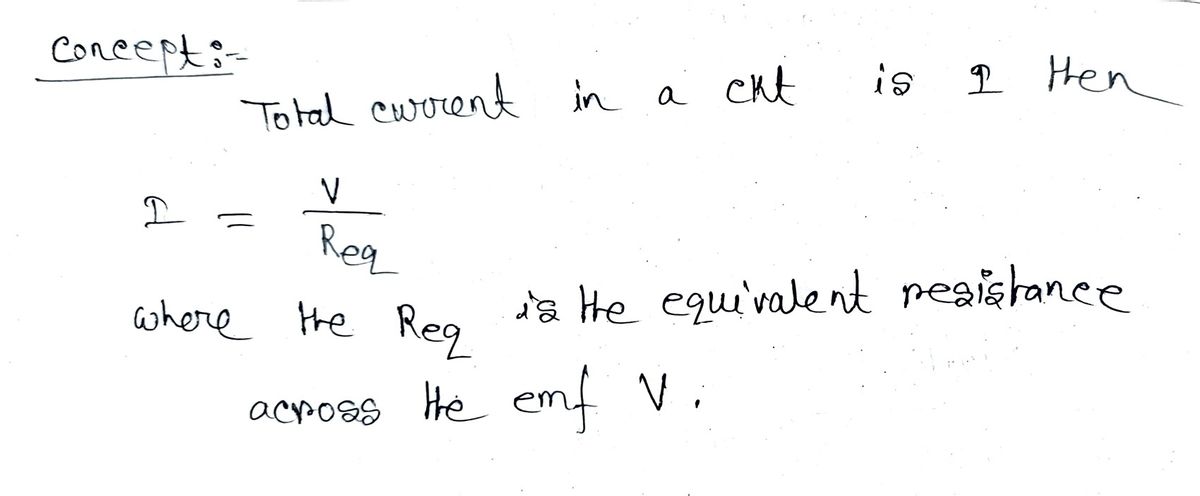 Concept:-
Total current in a ckt is I then
I = V / Req
where the Req is the equivalent resistance
across the emf V.